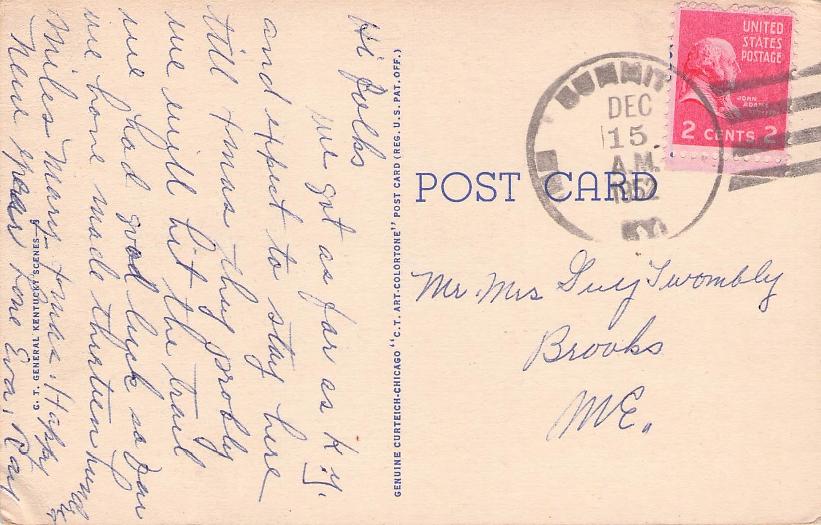 Hi folks
we got as far as Ky.
and expect to stay here
till Xmas they probly
we will hit the trail
we had good luck so far
we have made thirteen hund
miles Mary Xmas. Happy
New year love Eva, Ray
C. T. GENERAL KENTUCKY SCENES
GENUINE CURTEICH-CHICAGO "C.T. ART-COLORTONE" POST CARD (REG. U.S. PAT. OFF.)
POST CARD
SUMMIT
DEC
15
A.M.
1952
KY.
UNITED
STATES
POSTAGE
JOHN
ADAMS
2 CENTS 2
Mr. Mrs Guy Twombly
Brooks
ME.